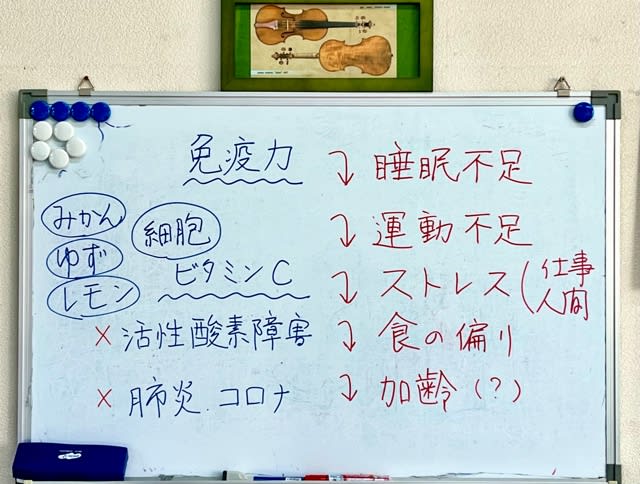 免疫力
みかん
ゆず
レモン
細胞
ビタミンC
× 活性酸素障害
× 肺炎.コロナ
↴ 睡眠不足
↴ 運動不足
↴ ストレス(仕事
人間
↴ 食の偏り
↴ 加齢(?)